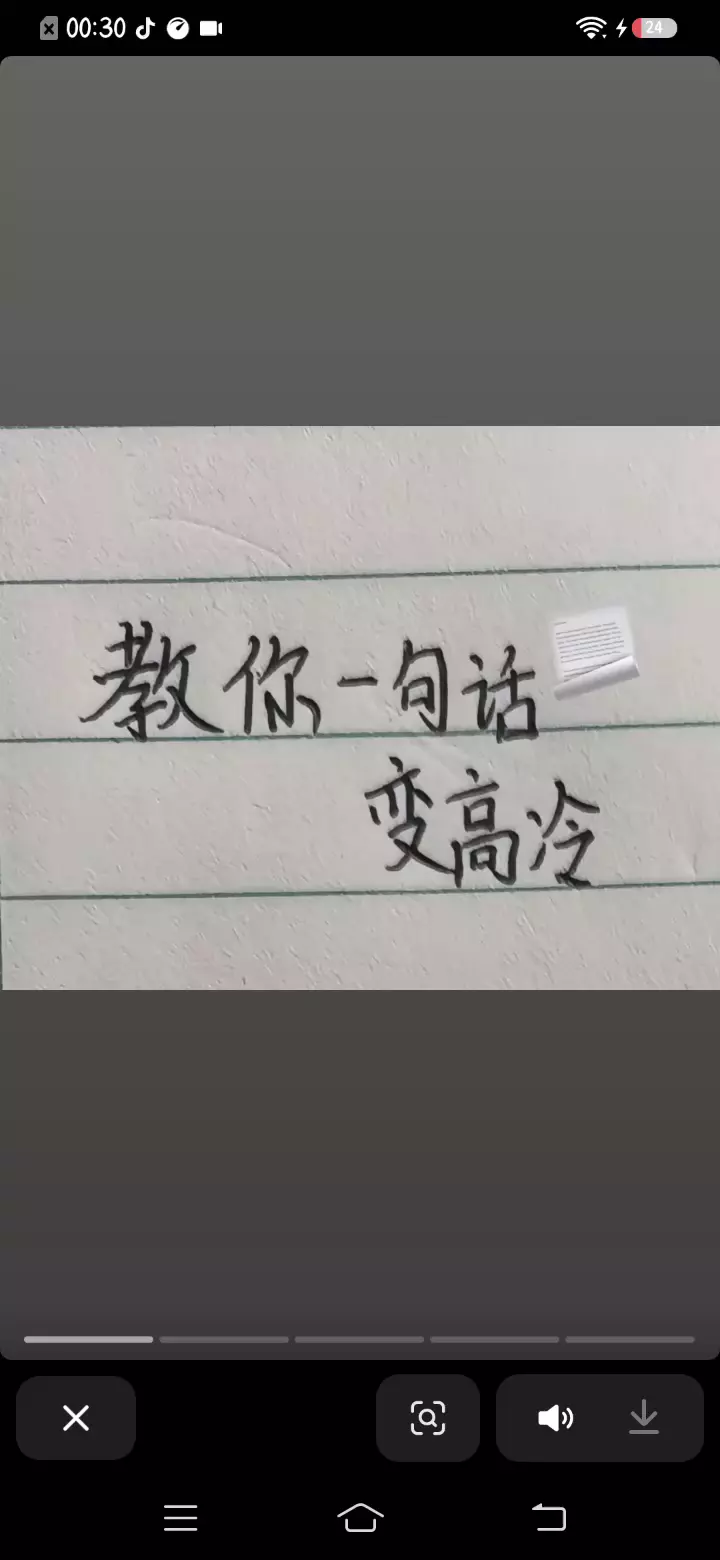 00:30
24
教你一句话
变高冷